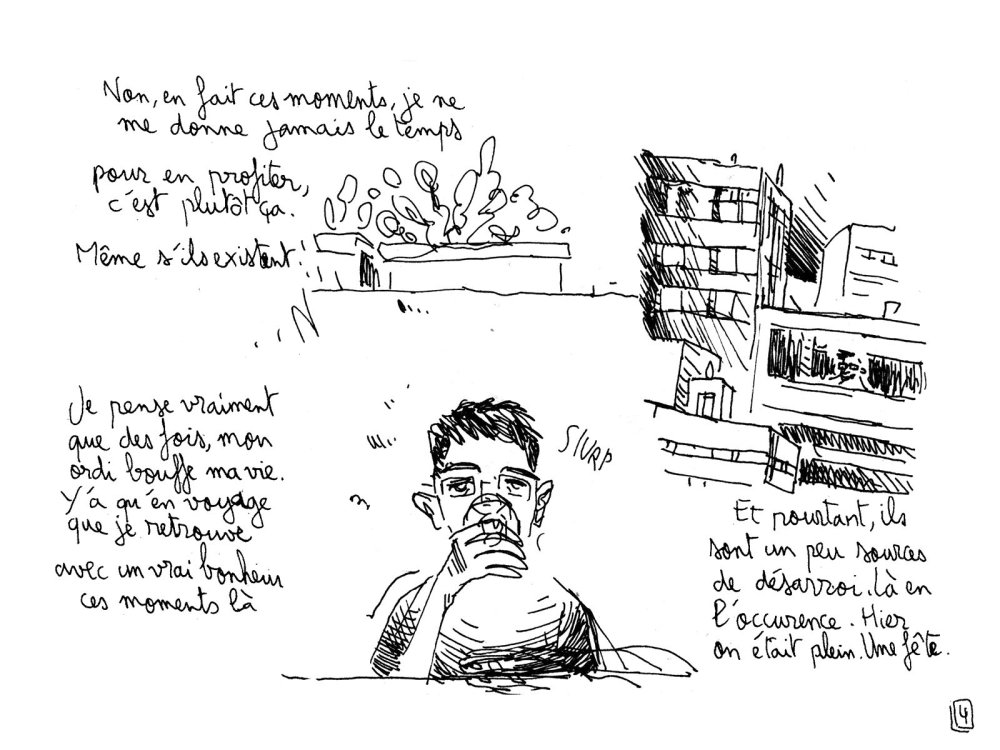 Non, en fait ces moments, je ne
me donne jamais le temps
pour en profiter,
c'est plutôt ça.
Même s'ils existent.
Je pense vraiment
que des fois, mon
ordi bouffe ma vie.
Y'a qu'en voyage
que je retrouve
avec un vrai bonheur
ces moments là
SLURP
Et pourtant, ils
sont un peu sources
de désarroi. Là en
l'occurence. Hier
on était plein. Une fête.
4